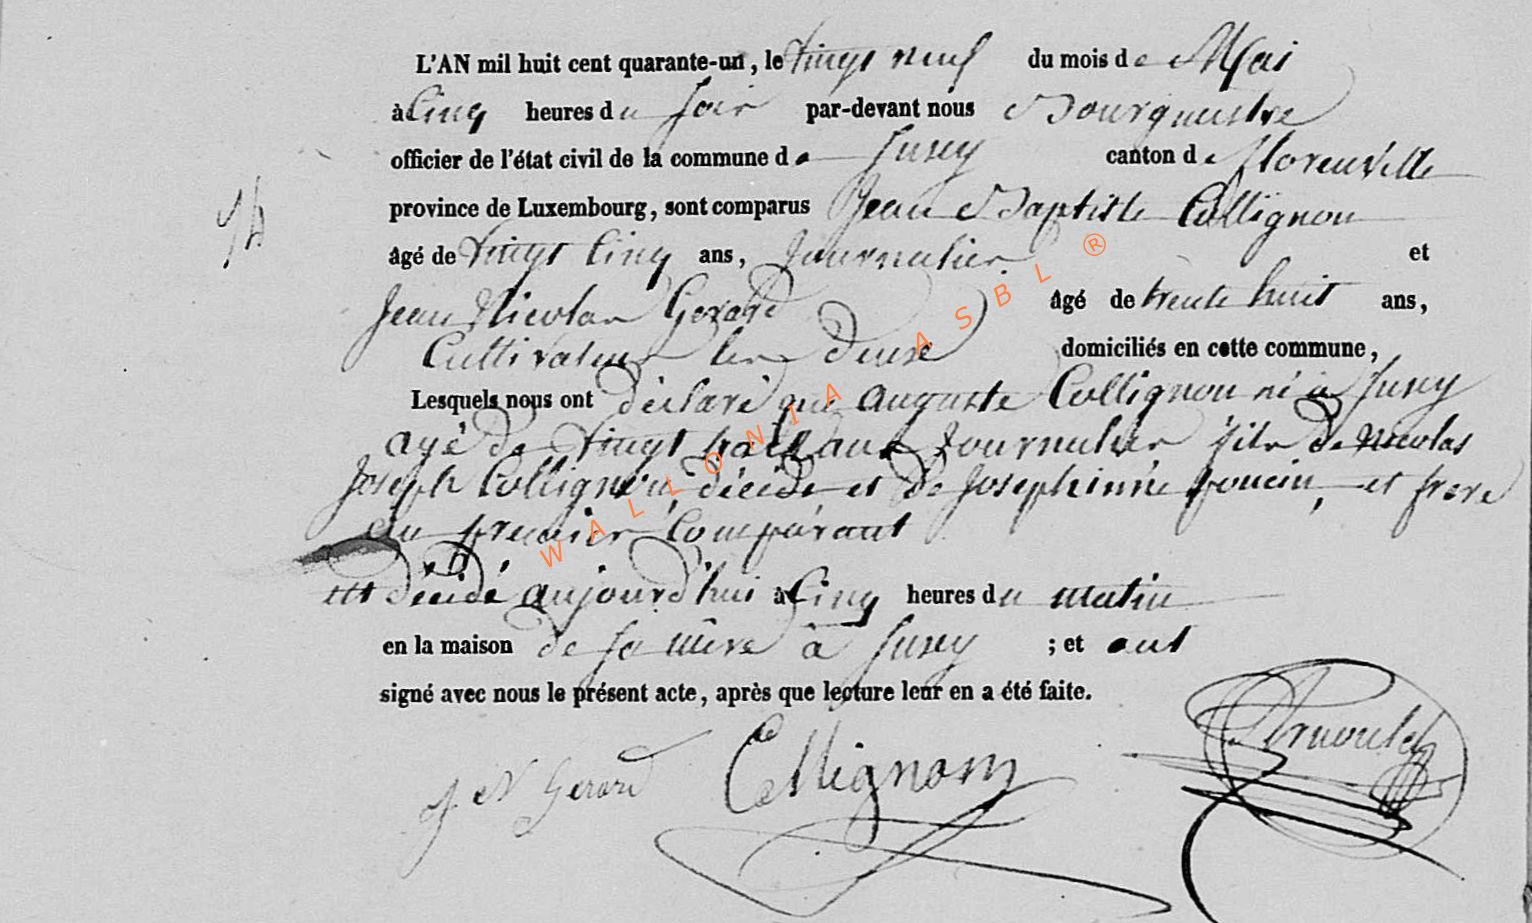 L'AN mil huit cent quarante-un, le vingt neuf du mois de Mai
à Cinq heures du Soir par-devant nous Bourgmestre
officier de l'état civil de la commune de Suxy canton de Florenville
province de Luxembourg, sont comparus Jean Baptiste Collignon
âgé de vingt Cinq ans, Journalier et
Jean Nicolas Gerard âgé de trente huit ans,
Cultivateur les deux domiciliés en cette commune,
Lesquels nous ont déclaré que Auguste Collignon né à Suxy
agé de vingt ans Journalier fils de Nicolas
Joseph Collignon décédé et de Josephinne poncin, et frere
du premier Comparant
est décédé aujourd'hui à Cinq heures du matin
en la maison de sa mère à Suxy ; et ont
signé avec nous le présent acte, après que lecture leur en a été faite.
J N Gerard Collignon
WALLONIA ASBL ®